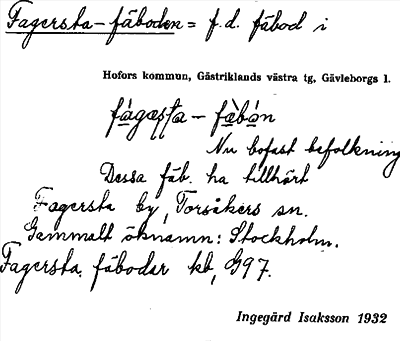 Fagersta-fäboden = f.d. fäbod i
Hofors kommun, Gästriklands västra tg, Gävleborgs l.
fágæsta - fæ̀bón
Nu bofast befolkning
Dessa fäb. ha tillhört
Fagersta by, Torsåkers sn.
Gammalt öknamn: Stockholm.
Fagersta fäbodar kb, G97.
Ingegärd Isaksson 1932